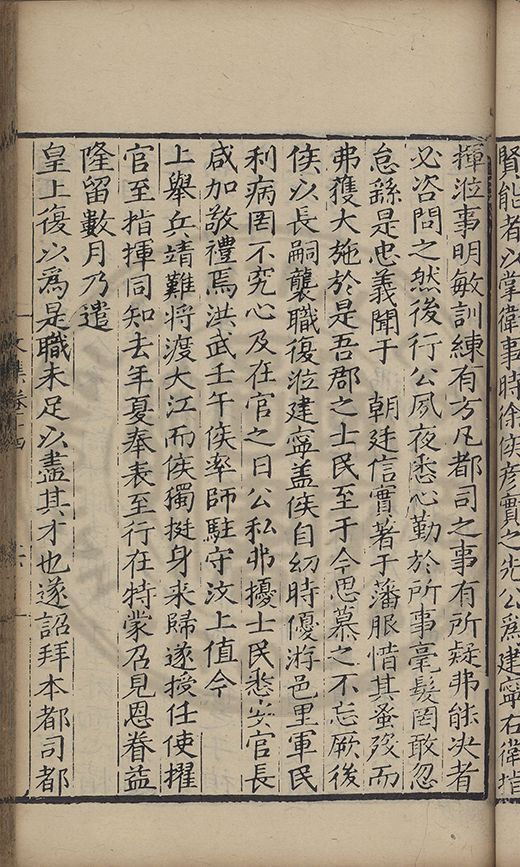 賢能者以掌衛事時徐侯彦實之先公爲建寧右衛指
揮涖事明敏訓練有方凡都司之事有所疑弗能决者
必咨問之然後行公夙夜悉心勤於所事毫髮罔敢忽
怠繇是忠義聞于　朝廷信實著于藩服惜其蚤歿而
弗獲大施於是吾郡之士民至于今思慕之不忘厥後
侯以長嗣襲職復涖建寧盖侯自㓜時優游邑里軍民
利病罔不究心及在官之日公私弗擾士民悉安官長
咸加敬禮焉洪武壬午侯率師駐守汶上值今
上舉兵靖難将渡大江而侯獨挺身来歸遂授任使擢
官至指揮同知去年夏奉表至行在特蒙召見恩眷益
隆留數月乃遣
皇上復以爲是職未足以盡其才也遂詔拜本都司都
文集卷十四
六